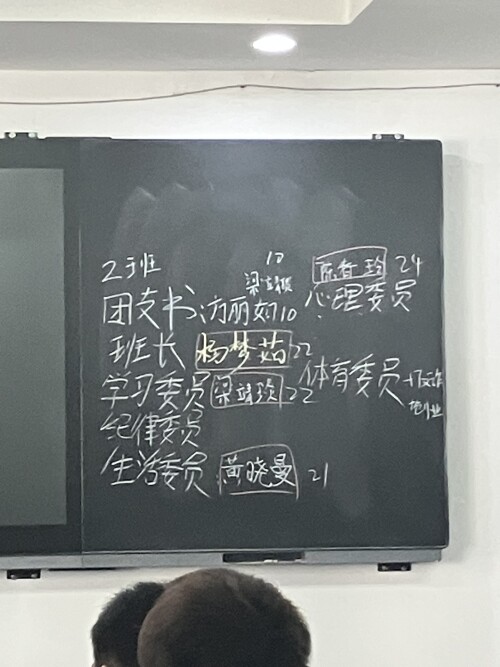 2班
团支书 方丽如 10
10
班长 杨梦茹 22
学习委员 梁靖欣 22
纪律委员
生活委员 黄晓曼 21
24
心理委员
体育委员